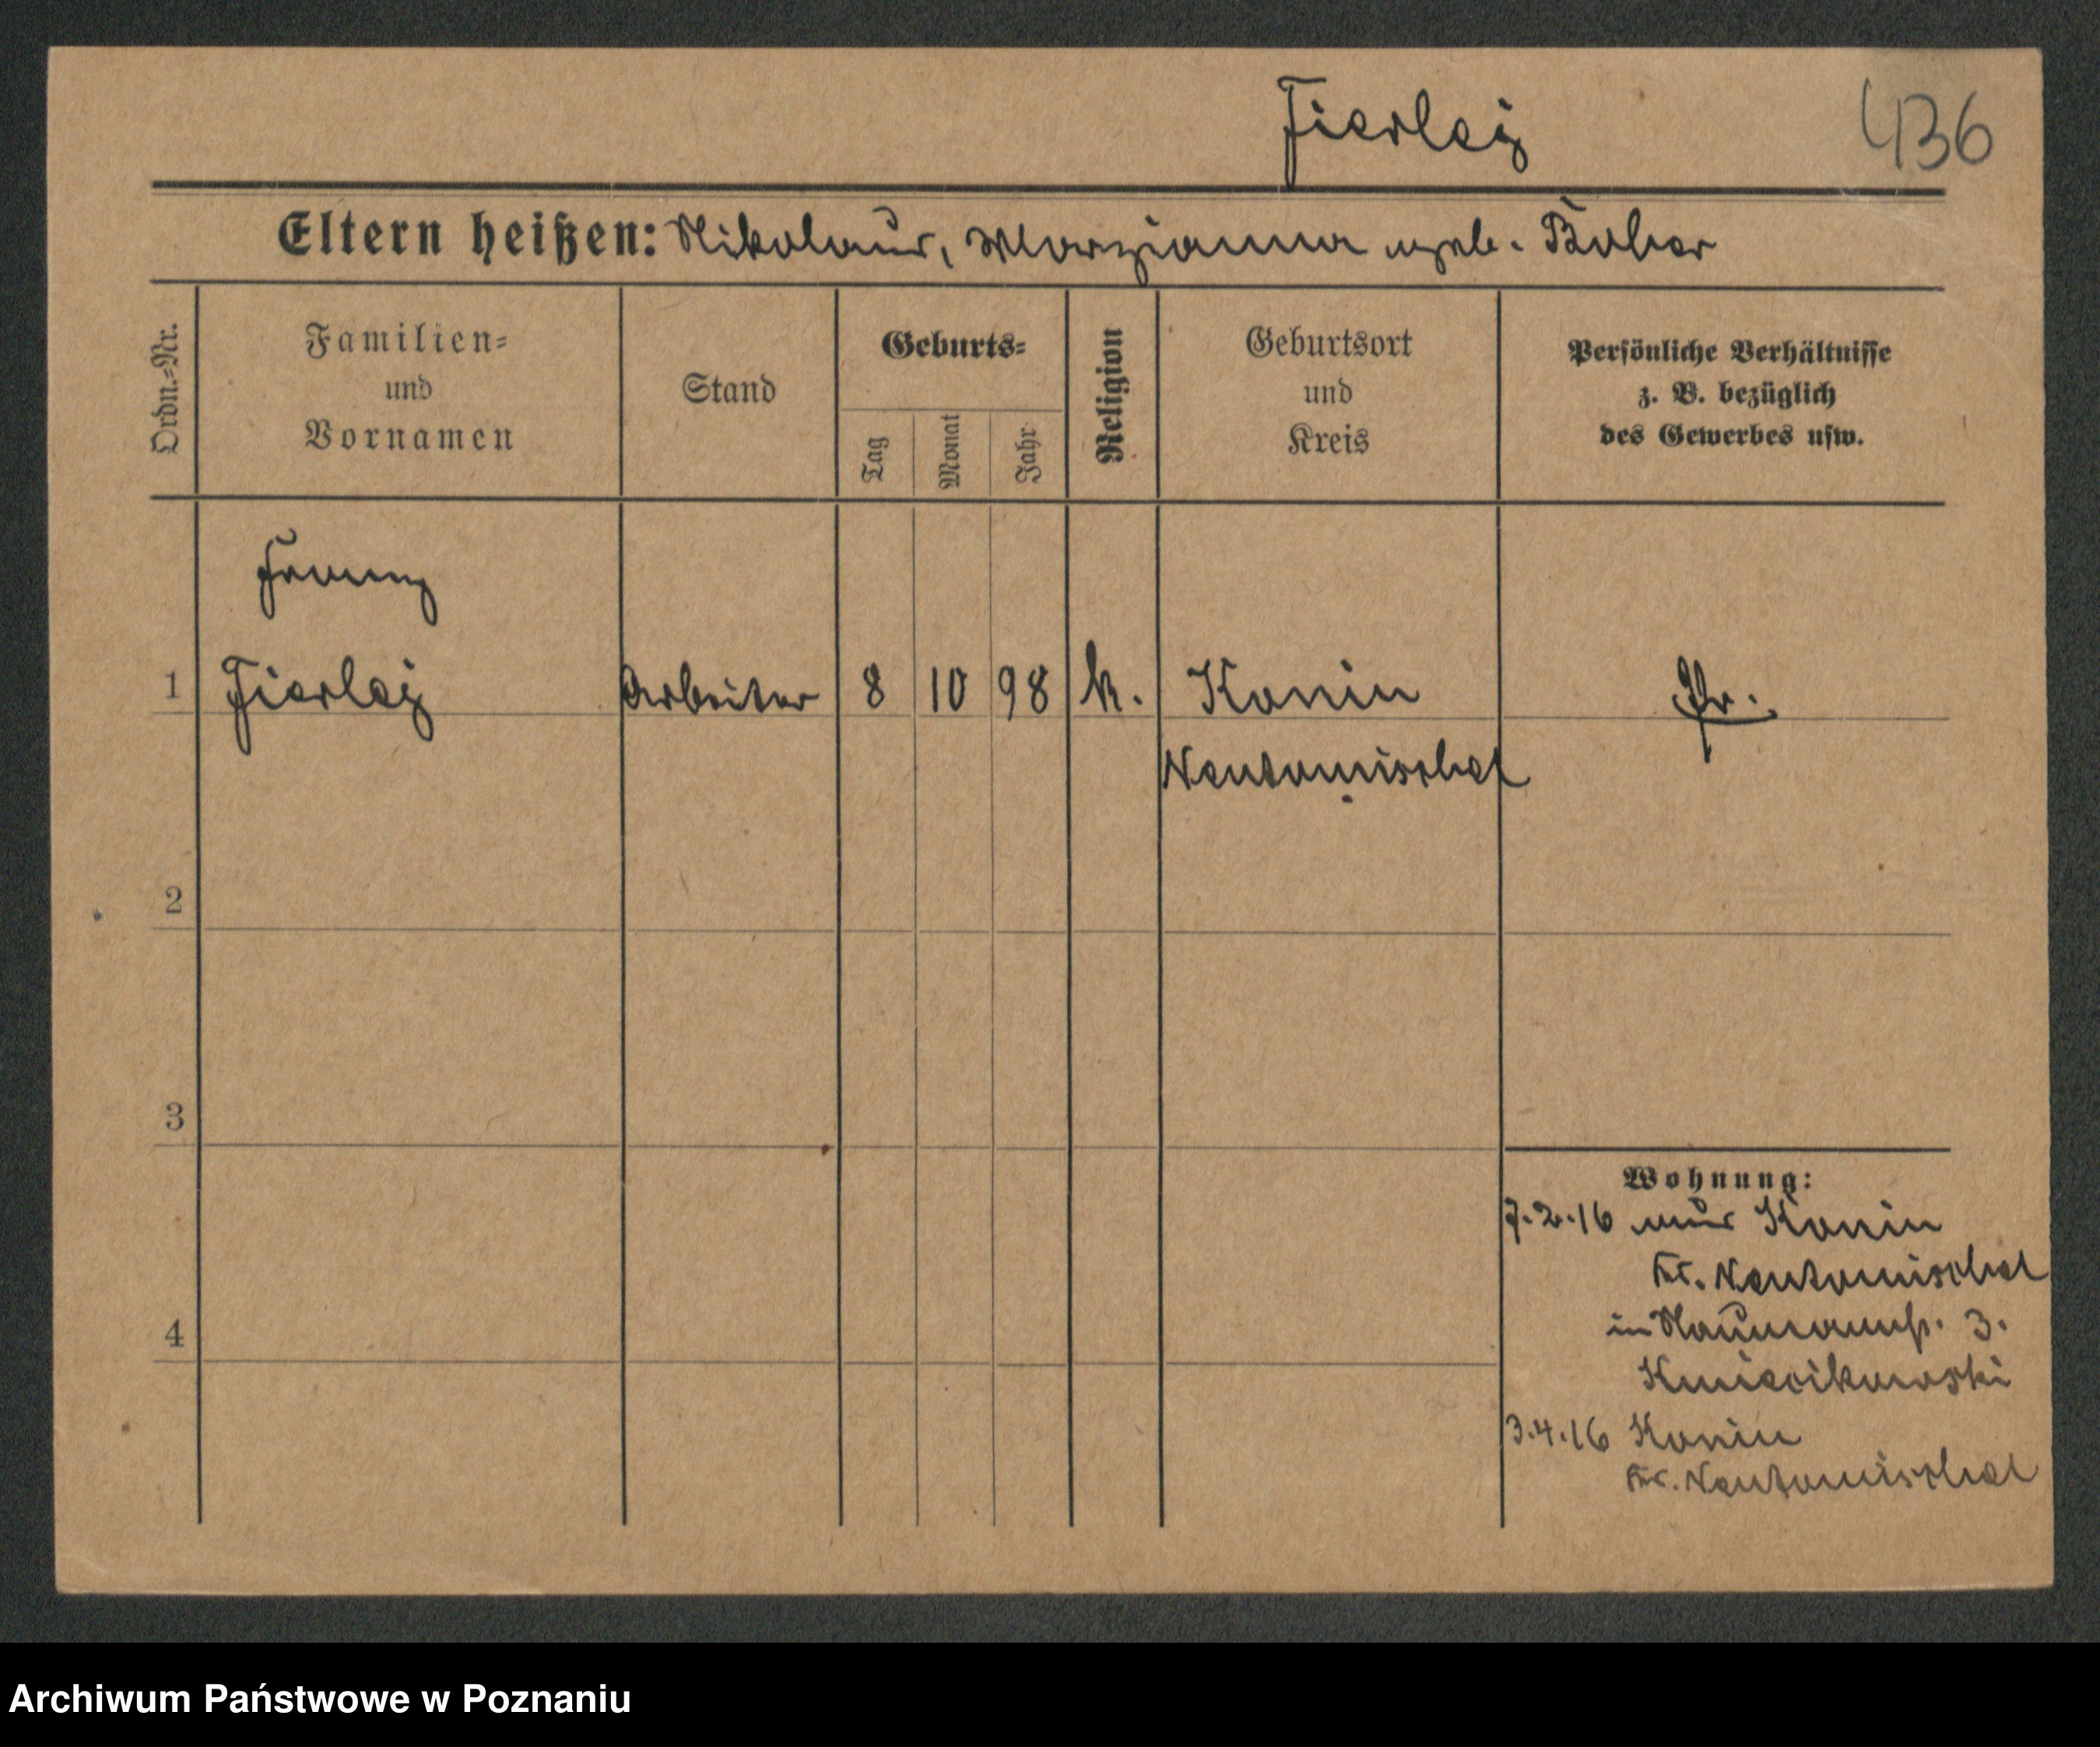 Fierlej
436
Eltern heißen: Nikolaus, Marzianna geb. Bober
Ordn.=Nr.
Familien=
und
Vornamen
Stand
Geburts=
Tag
Monat
Jahr
Religion
Geburtsort
und
Kreis
Persönliche Verhältnisse
z. B. bezüglich
des Gewerbes usw.
Franz
1 Fierlej Arbeiter 8 10 98 k. Konin Pr.
Neutomischel
2
3
Wohnung:
7.2.16 aus Konin
Kr. Neutomischel
4
in Naumannstr. 3.
Kmiecikowski
3.4.16 Konin
Kr. Neutomischel
Archiwum Państwowe w Poznaniu